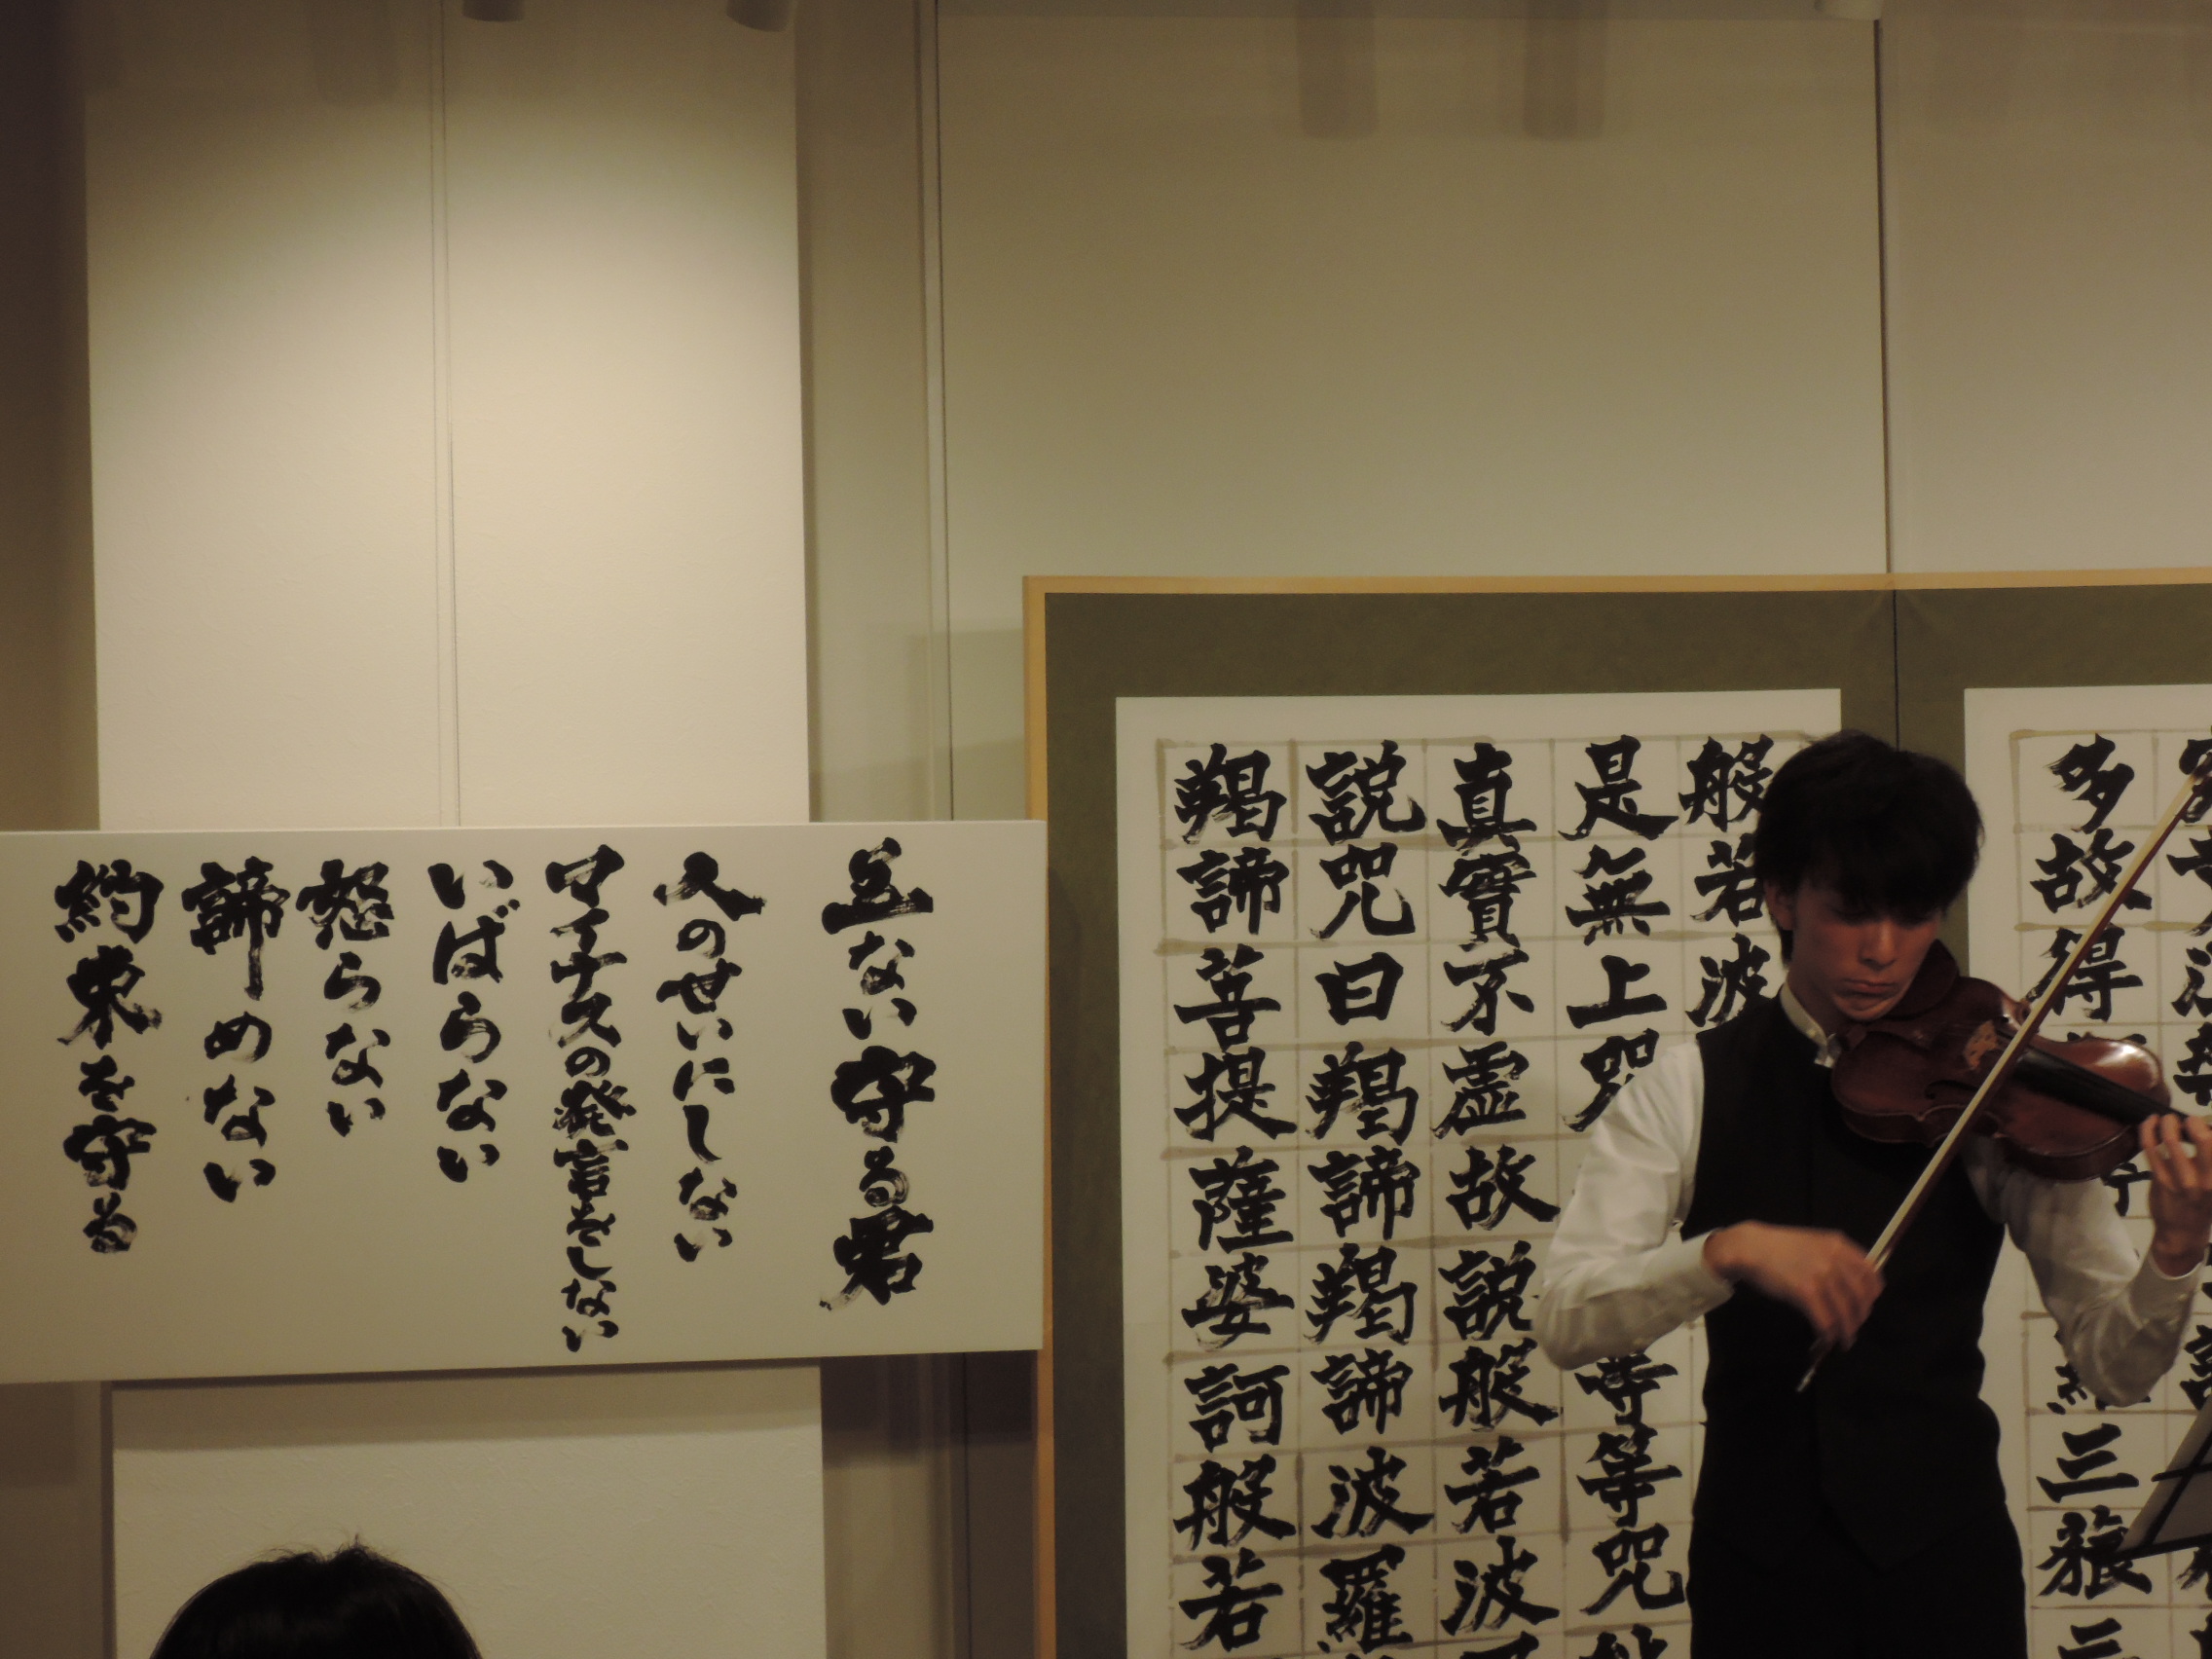 多故得三藐三
般若波
是無上咒等等咒
真實不虚故説般若波
説咒曰羯諦羯諦波羅
羯諦菩提薩婆訶般若
五ない守る君
人のせいにしない
マイナスの発言をしない
いばらない
怒らない
諦めない
約束を守る